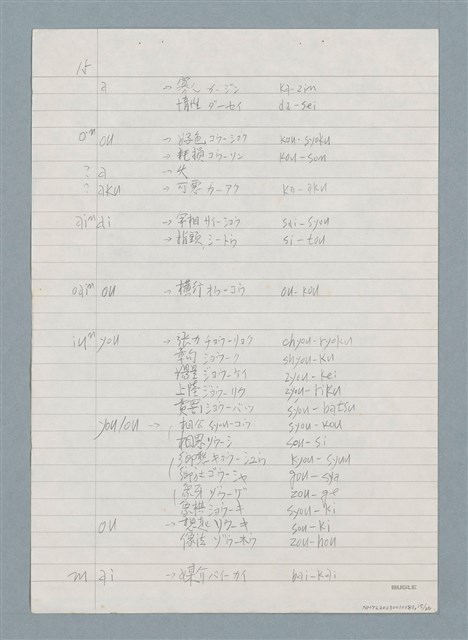 15
a → 寡人 カージン ka-zin
惰性 ダーセイ da-sei
oⁿ ou → 好色 コウーショク kou-syoku
→ 耗損 コウーソン kou-son
? a → 火
? aku → 可悪 カーアク ka-aku
aiⁿ ai → 宰相 サイーショウ sai-syou
→ 指頭 シートウ si-tou
oaiⁿ ou → 横行 オウーコウ ou-kou
iuⁿ you → 張力 チョウーリョク chyou-ryoku
章句 ショウーク shyou-ku
ジョウーケイ zyou-kei
上陸 ジョウーリク zyou-riku
賞罰 ショウーバツ syou-batsu
you/ou → 相公 syouーコウ syou-kou
相思 ソウーシ sou-si
郷愁 キョウーシュウ kyou-syuu
郷社 ゴウーシャ gou-sya
象牙 ゾウーゲ zou-ge
象棋 ショウーキ syou-ki
ou → 想起 ソウーキ sou-ki
像法 ゾウーホウ zou-hou
m ai → 媒介 バイーカイ bai-kai
BUGLE